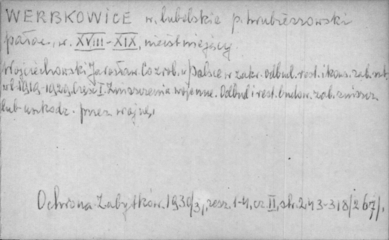 WERBKOWICE w. lubelskie p. hrubieszowski
pałac, w. XVIII-XIX, nieistniejący
Wojciechowski Jarosław. Co zrob. w Polsce w zakr. odbud. rest. i kons. zab. szt.
w l. 1919-1929. Część I. Zniszczenia wojenne. Odbud. i rest. budow. zab. zniszcz.
lub uszkodz. przez wojnę.
Ochrona Zabytków. 1930/31, zesz. 1-4, cz. II, str. 243-318/267/.